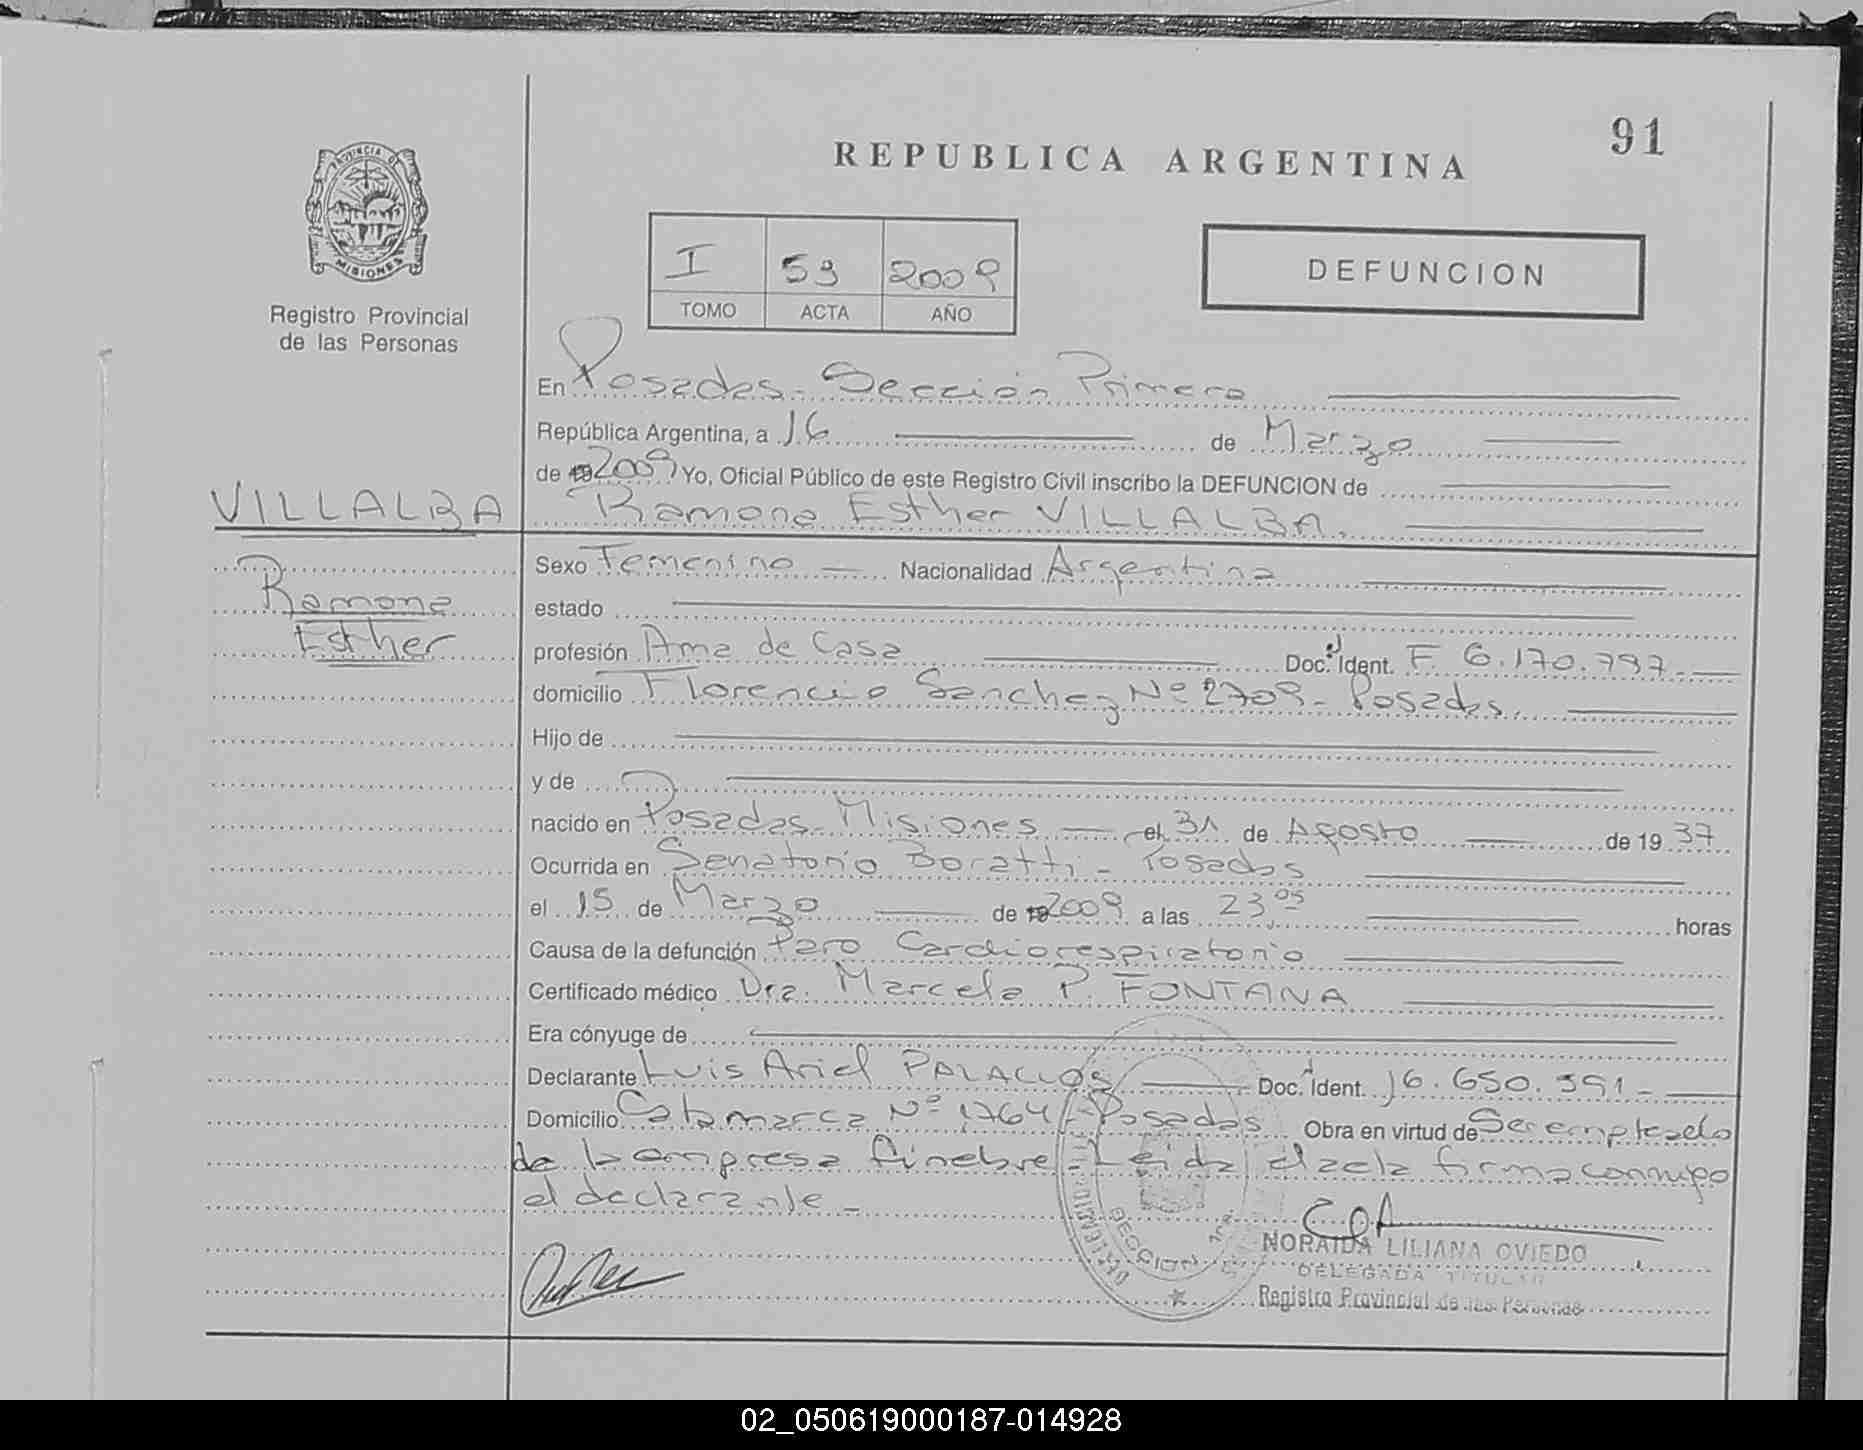 91
REPUBLICA ARGENTINA
PROVINCIA DE
MISIONES
Registro Provincial
de las Personas
I 59 2009
TOMO ACTA AÑO
DEFUNCION
En Posadas - Sección Primera
República Argentina, a 16 de Marzo
de 19 2009 Yo, Oficial Público de este Registro Civil inscribo la DEFUNCION de
VILLALBA Ramona Esther VILLALBA.
Ramona
Esther
Sexo Femenino Nacionalidad Argentina
estado
profesión Ama de Casa Doc. Ident. F. 6.170.797.
domicilio Florencio Sanchez Nº 2709 - Posadas.
Hijo de
y de
nacido en Posadas - Misiones el 31 de Agosto de 19 37
Ocurrida en Sanatorio Boratti - Posadas
el 15 de Marzo de 19 2009 a las 23 05 horas
Causa de la defunción Paro Cardiorespiratorio
Certificado médico Dra. Marcela P. FONTANA
Era cónyuge de
Declarante Luis Ariel PALACIOS Doc. Ident. 16.650.591 -
Domicilio Catamarca Nº 1764 - Posadas Obra en virtud de Ser empleado
de la empresa fúnebre - Leida el acta firma conmigo
el declarante -
SECCION 1ra.
NORAIDA LILIANA OVIEDO
DELEGADA TITULAR
Registro Provincial de las Personas
02_050619000187-014928